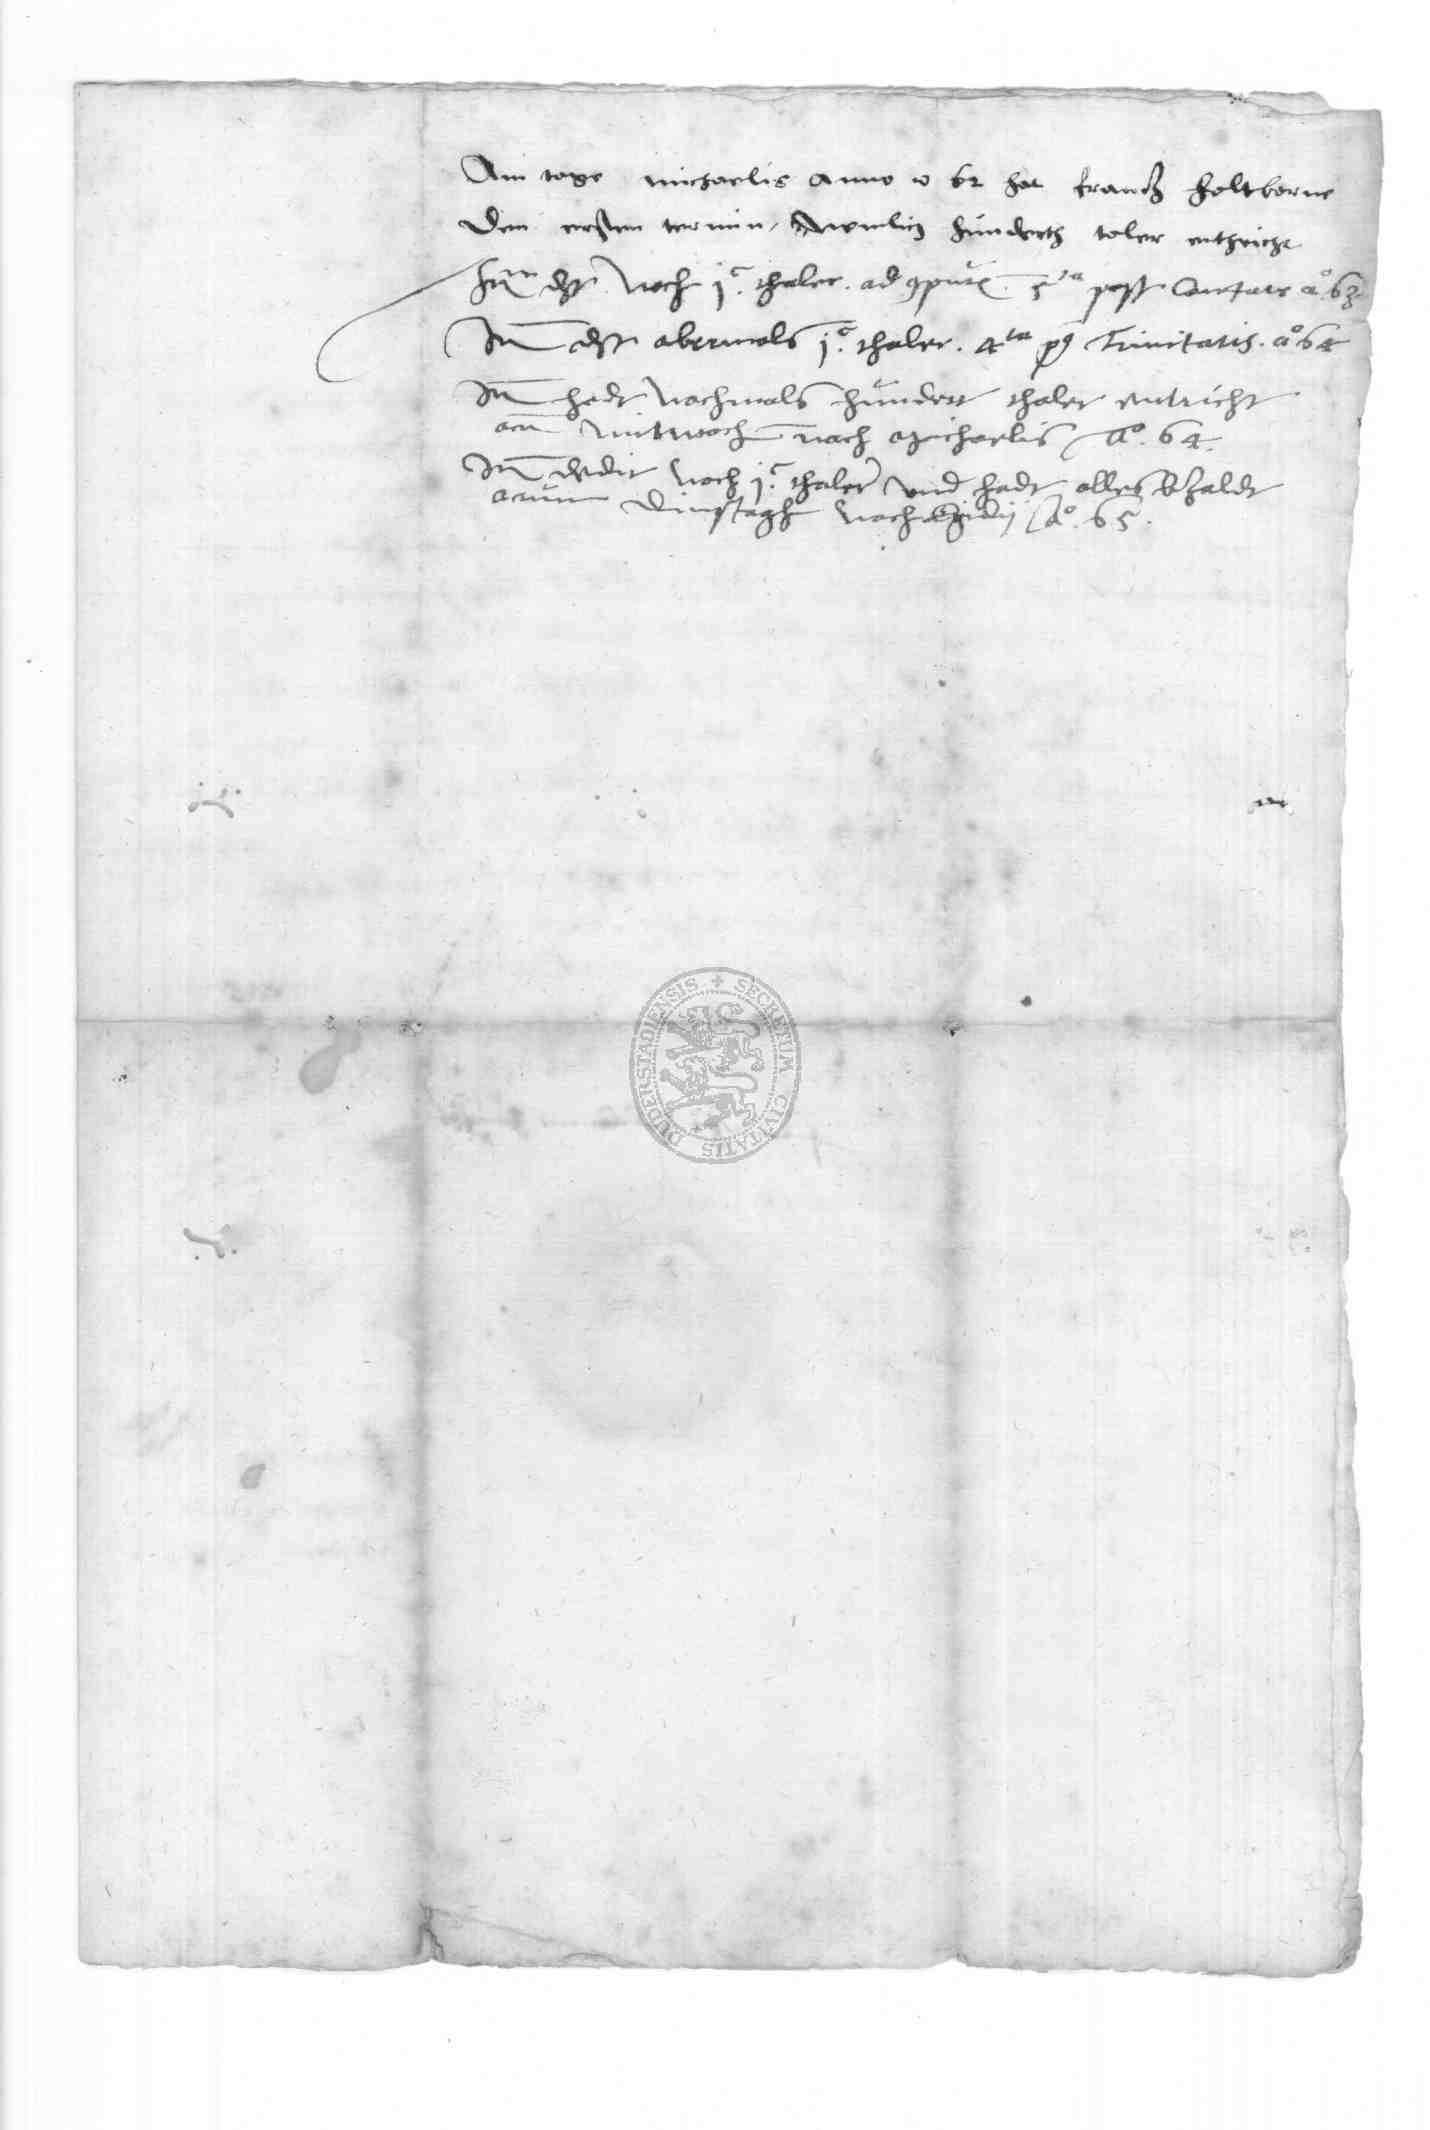 Am tage michaelis anno 62 hat frantz holtborne
Den ersten termin, Nemlich hundertt taler entricht
noch j c thaler. ad 5 ta post Cantate ao 63
abermals j c thaler. 4 ta p9 Trinitatis. ao 64
Itm hadt nochmals hundert thaler entricht
am mitwoch nach Michaelis Ao. 64.
Itm dedit noch j c thaler und hadt alles bezaldt
Dinstagh nach Egidij Ao. 65.
SECRETUM CIVITATIS DUDERSTADIENSIS